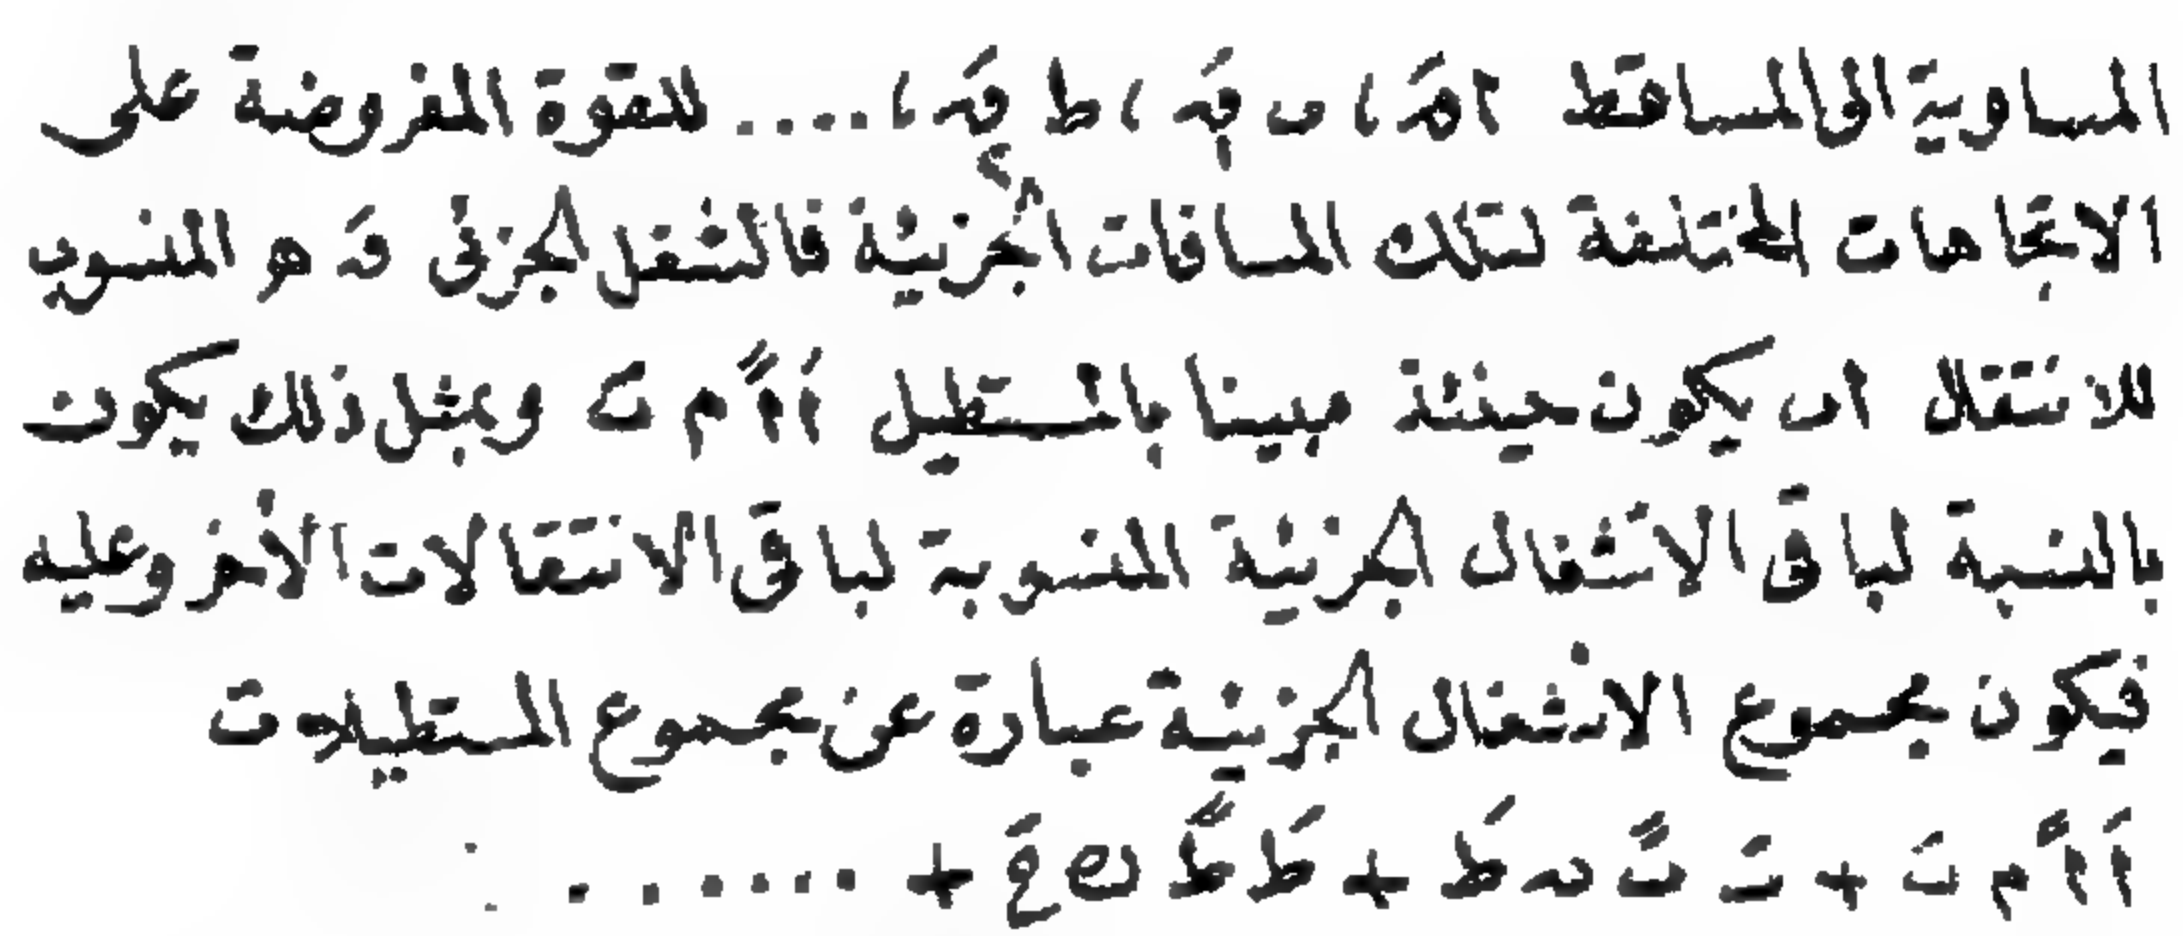 المساوية الى المساقط ام́، ب ق́، ط ق́، .... للقوة المفروضة على
الاتجاهات المختلفة لتلك المسافات الجزئية فالشغل الجزئى ق́ هو المنسوب
للانتقال اب يكون حينئذ مبينا بالمستطيل اَ اً م تَ وبمثل ذلك يكون
بالنسبة لباقى الاشغال الجزئية المنسوبة لباقى الانتقالات الأخر وعليه
فيكون مجموع الاشغال الجزئية عبارة عن مجموع المستطيلات
اَ اً م تَ + تَ تً ن طَ + طَ طً ك عَ + ......